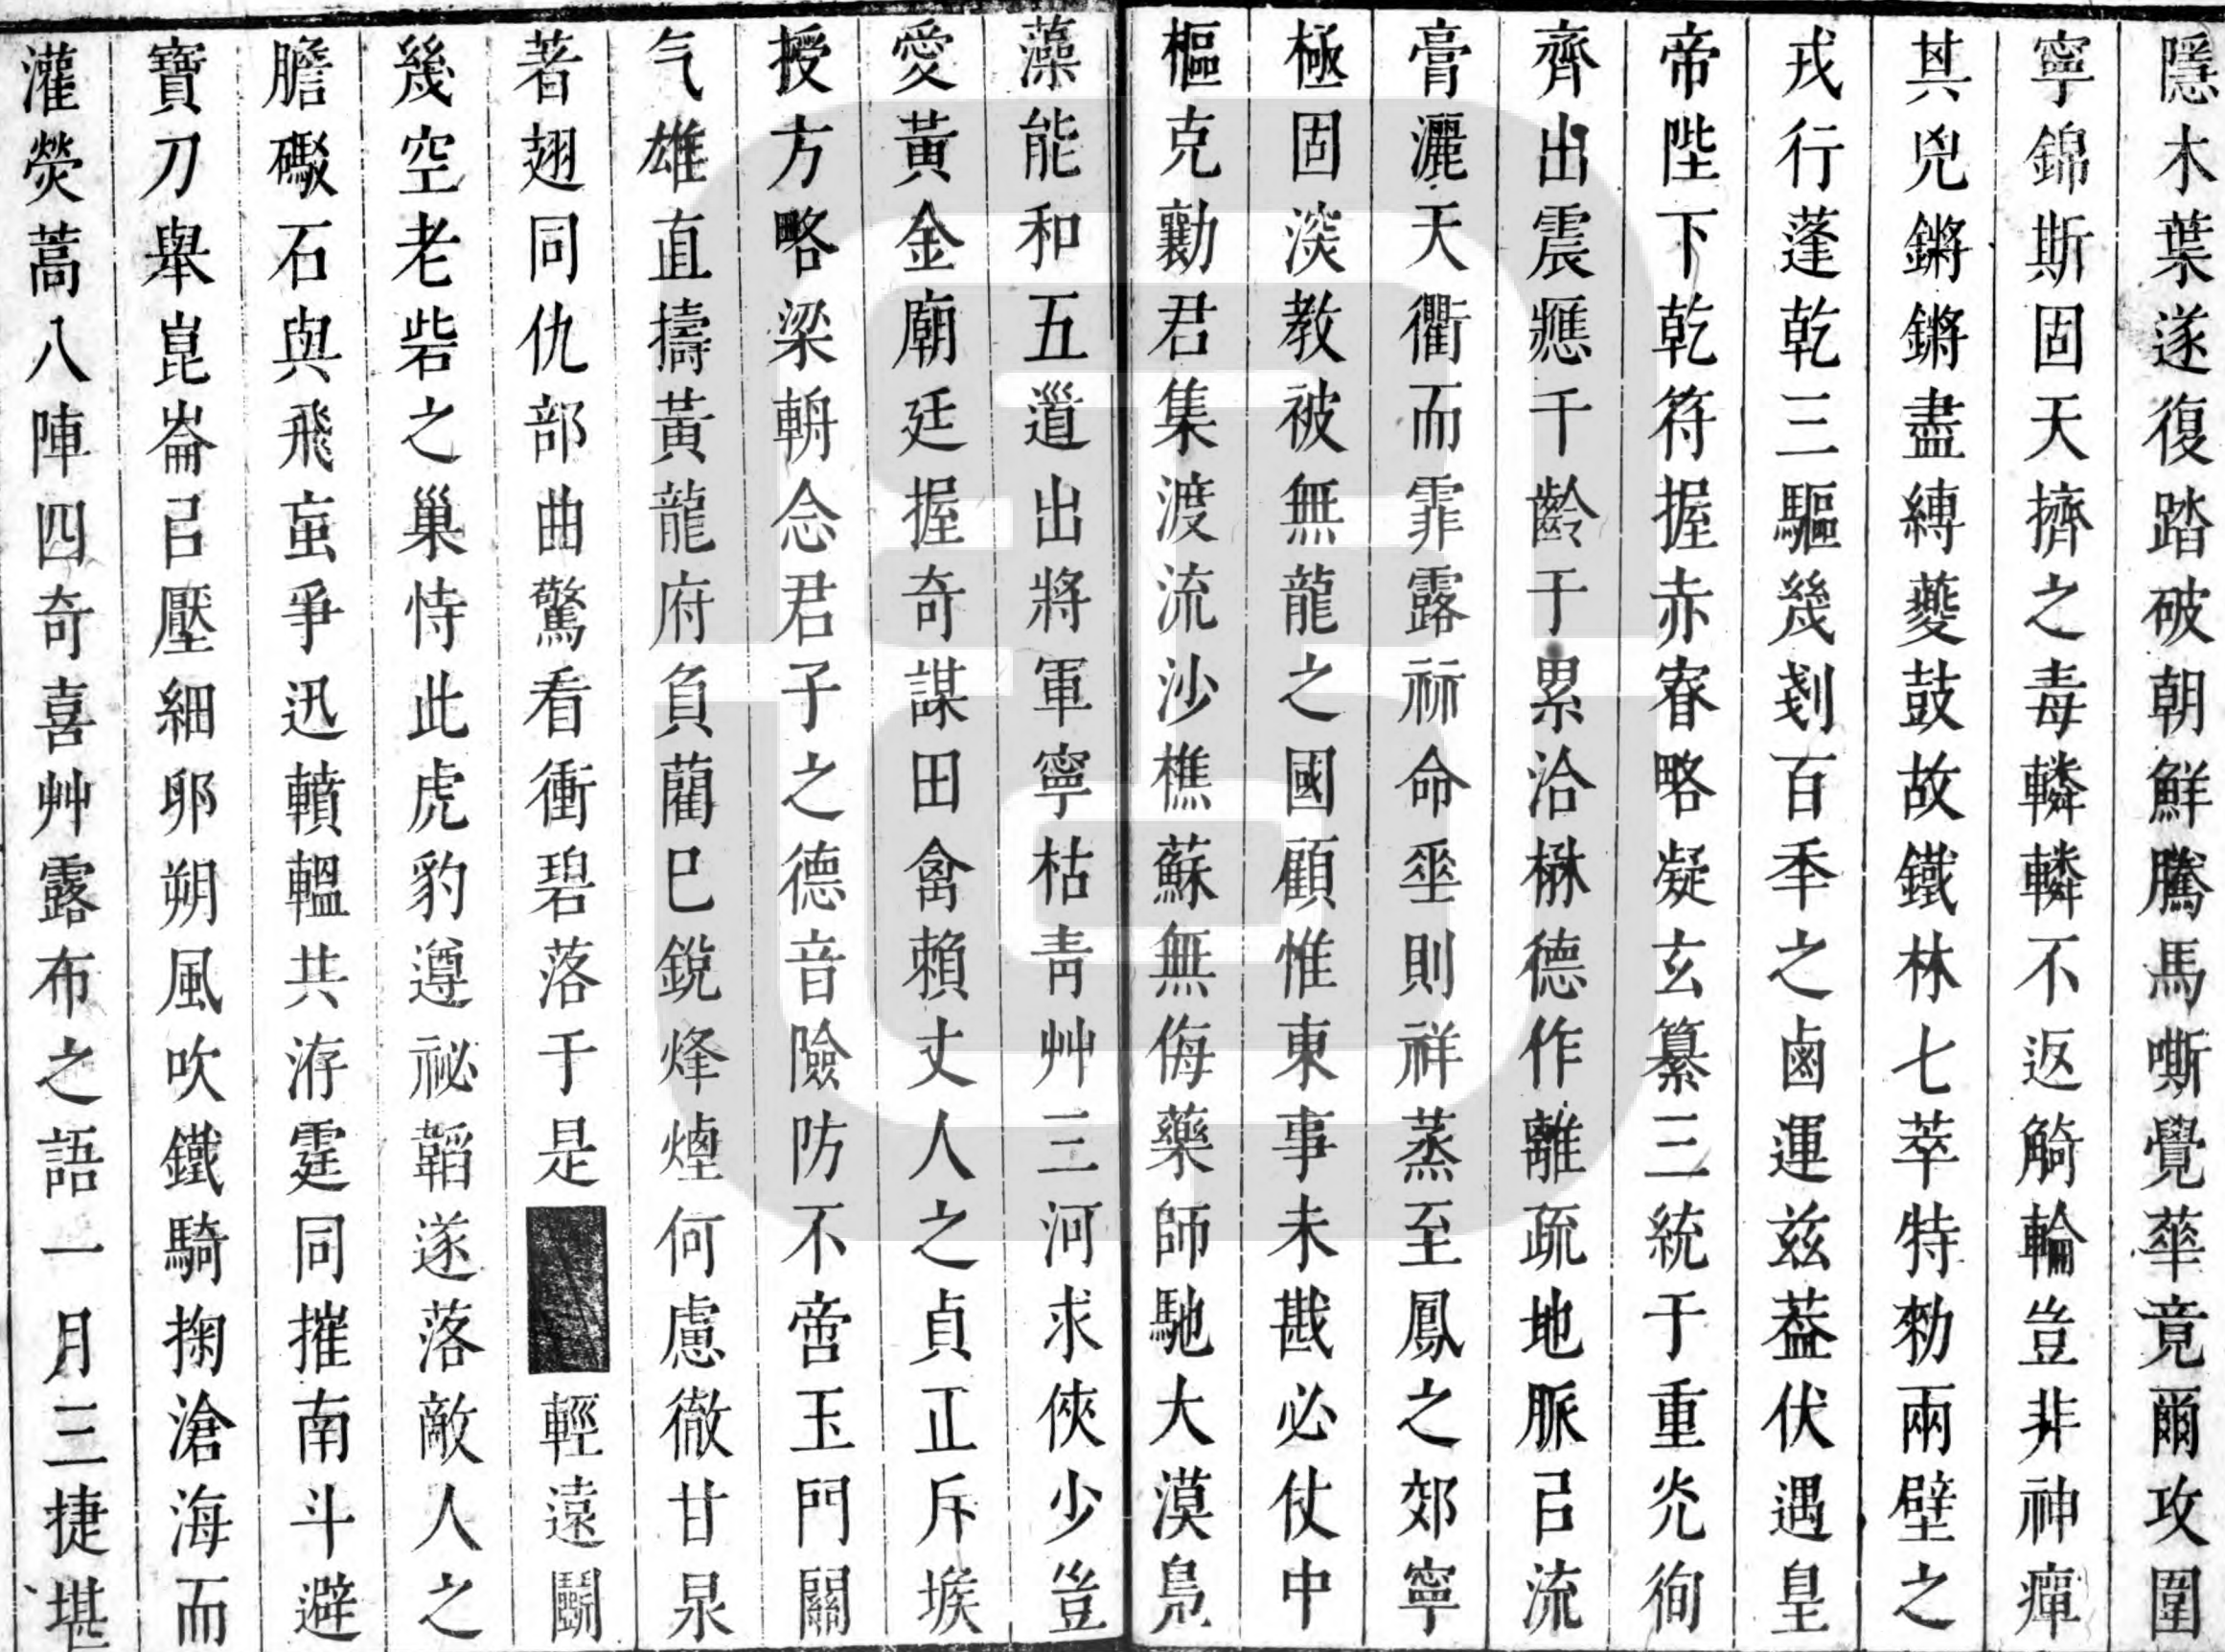 隱木葉遂復踏破朝鮮騰馬嘶覺華竟爾攻圍
寧錦斯固天擠之毒轔轔不返觭輪豈非神癉
其兇鏘鏘盡縛夔鼓故鐵林七萃特勑兩壁之
戎行蓬乾三驅幾剗百秊之鹵運茲葢伏遇皇
帝陛下乾符握赤睿略凝玄纂三統于重光徇
齊出震應千齡于累洽楙德作離疏地脈㠯流
膏灑天衢而霏露祘命坙則祥蒸至鳳之郊寧
極固淡教被無龍之國顧惟東事未戡必仗中
樞克勷君集渡流沙樵蘇無侮藥師馳大漠鳧
藻能和五道出將軍寧枯青艸三河求俠少豈
愛黃金廟廷握奇謀田禽賴丈人之貞正斥堠
授方略梁輈念君子之德音險防不啻玉門關
气雄直擣黃龍府負藺巳銳烽煙何慮徹甘泉
著翅同仇部曲驚看衝碧落于是輕遠鬭
幾空老砦之巢恃此虎豹遵祕韜遂落敵人之
膽礮石與飛䖟爭迅轒轀共洊霆同摧南斗避
寶刀舉崑崙㠯壓細卵朔風吹鐵騎掬滄海而
灌熒蒿八陣四奇喜艸露布之語一月三捷堪